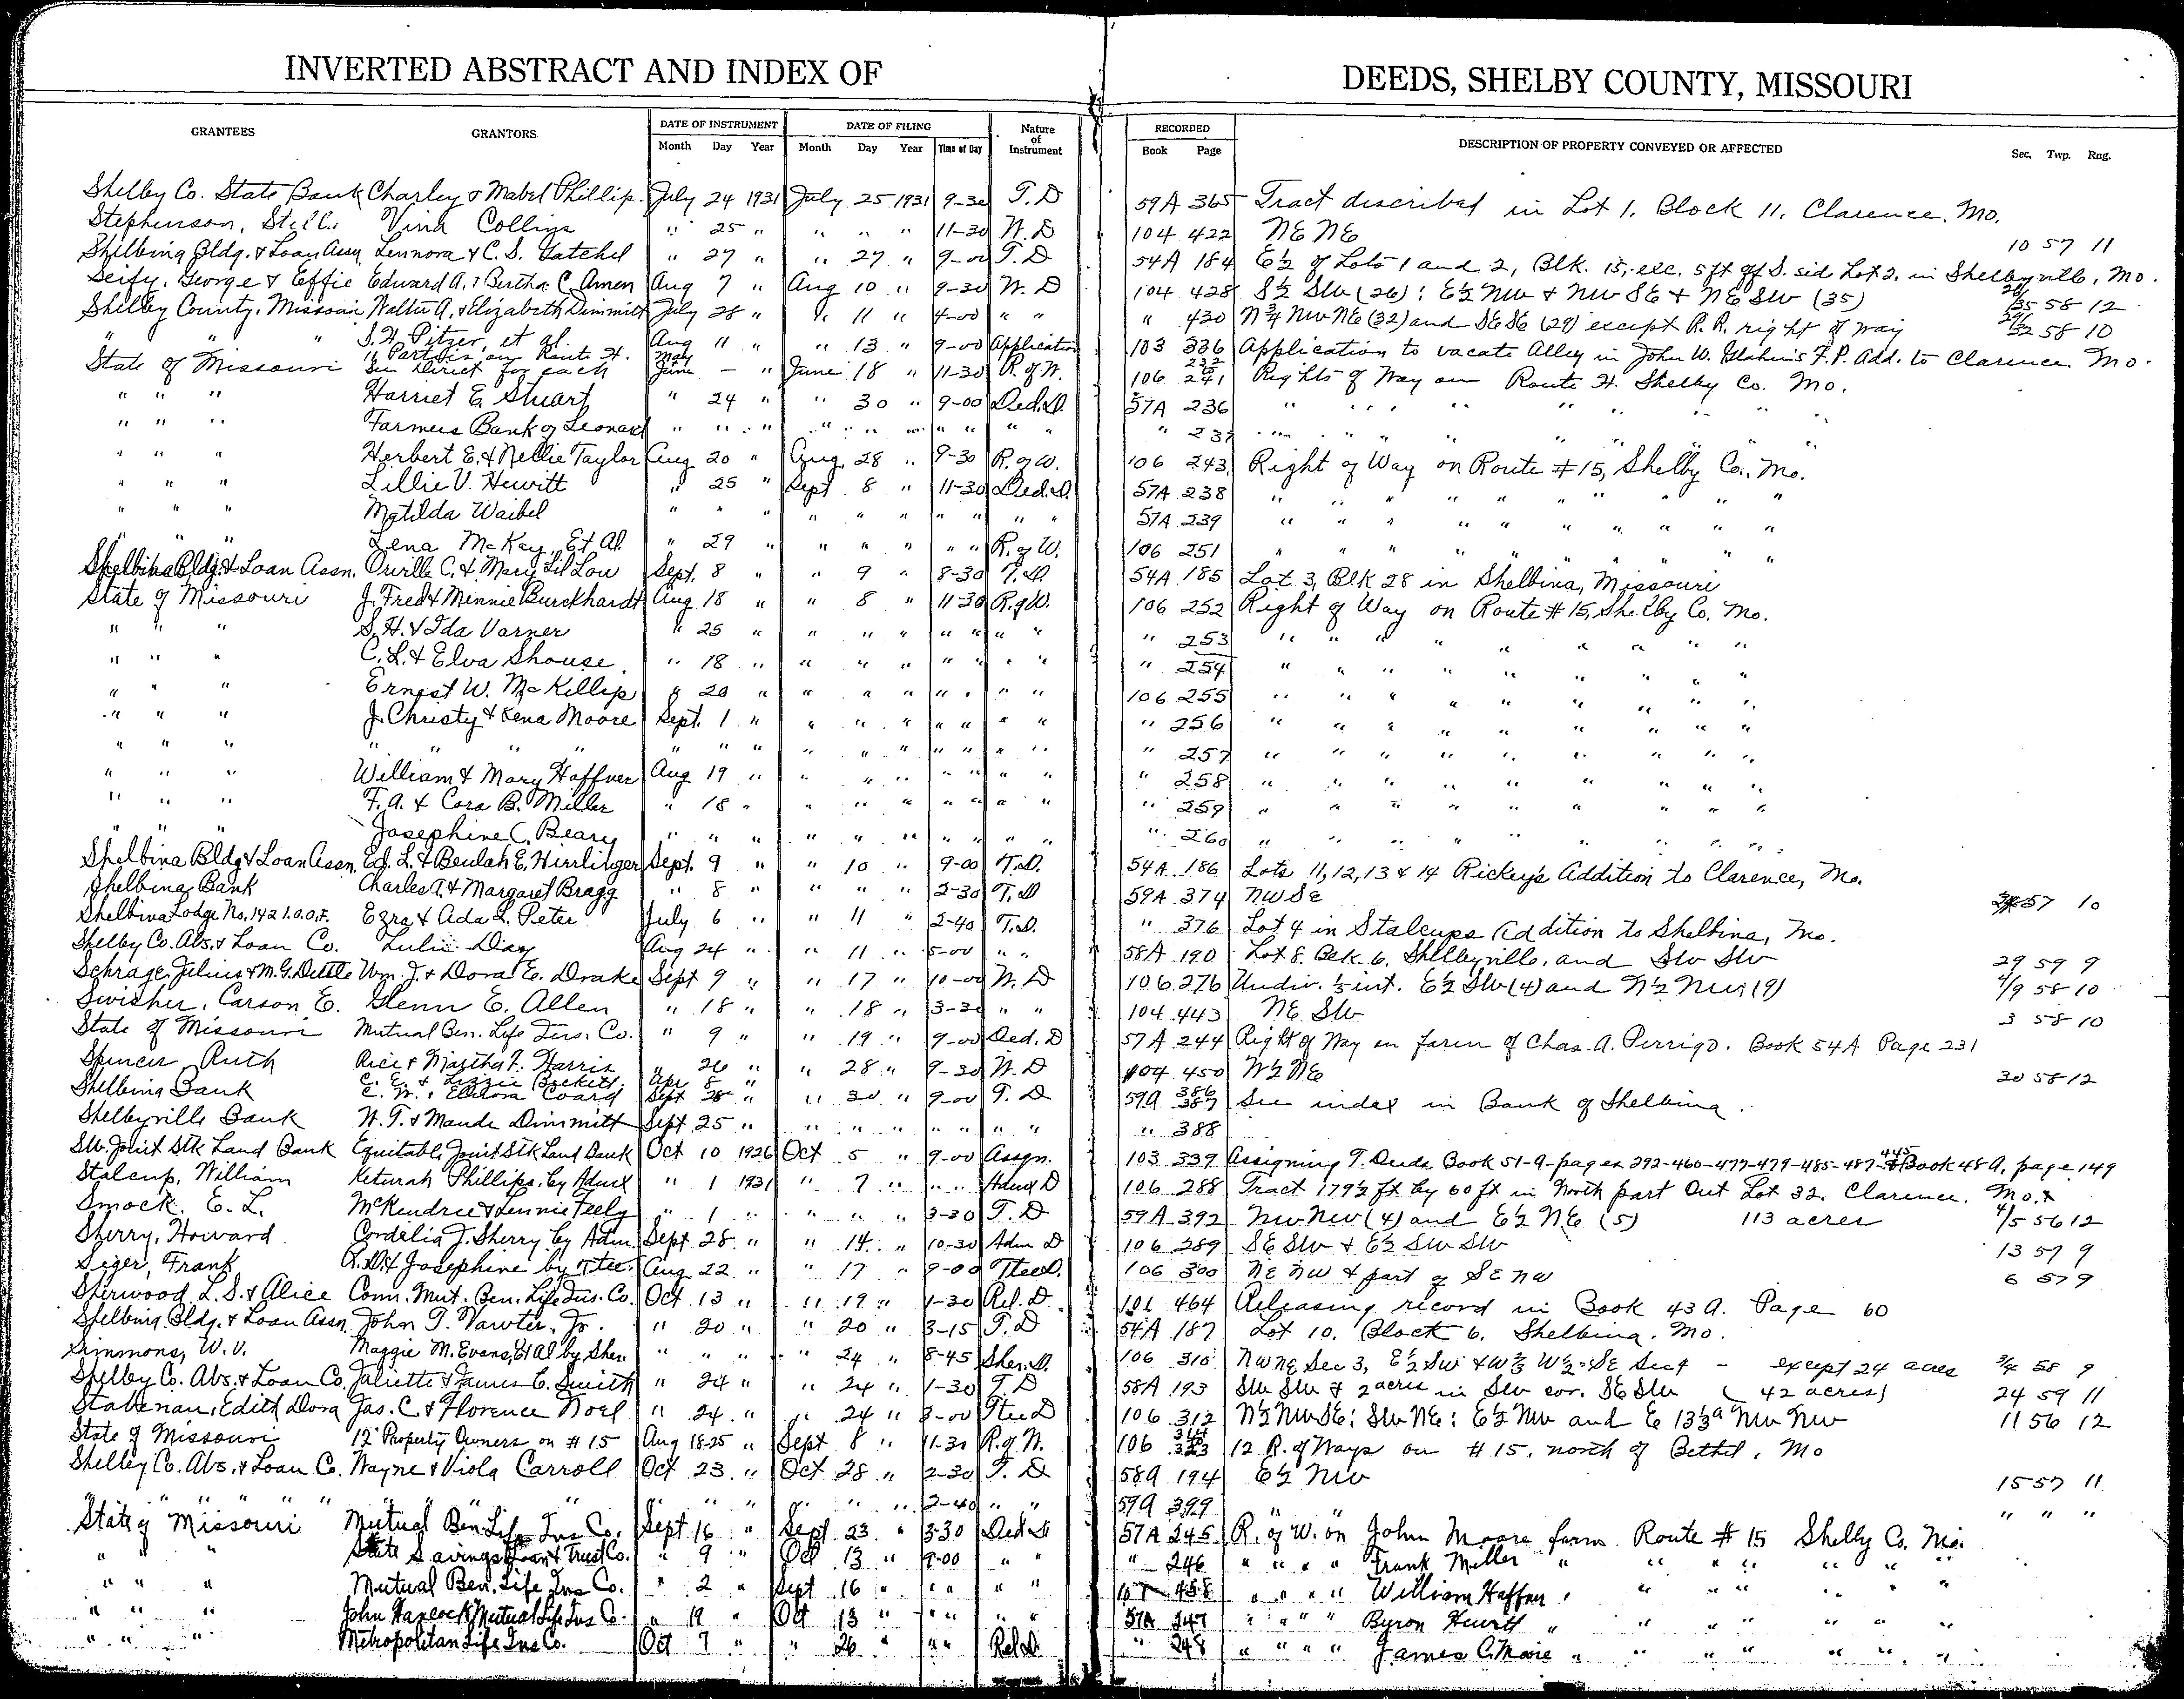 INVERTED ABSTRACT AND INDEX OF DEEDS, SHELBY COUNTY, MISSOURI
GRANTEES GRANTORS DATE OF INSTRUMENT DATE OF FILING Nature of Instrument RECORDED DESCRIPTION OF PROPERTY CONVEYED OR AFFECTED Sec. Twp. Rng.
Month Day Year Month Day Year Time of Day Book Page
Shelby Co. State Bank Charley & Mabel Phillip July 24 1931 July 25 1931 9-30 T.D 59A 365 Tract described in Lot 1, Block 11, Clarence, Mo.
Stephenson, Vina Collins " 25 " " " " 11-30 W.D 104 422 NE NE 10 57 11
Shelbina Bldg. & Loan Assn Lennora & C.S. Gatchel " 27 " " 27 " 9-00 T.D 54A 184 E½ of Lots 1 and 2, Blk. 15, exc. 5 ft off S. side Lot 2, in Shelbyville, Mo.
Seify, George & Effie Edward A. & Bertha C. Amen Aug 7 " Aug 10 " 9-30 W.D 104 428 S½ SW (26); E½ NW & NW SE & NE SW (35) 26/35 58 12
Shelby County, Missouri Walter A. & Elizabeth Dimmitt July 28 " " 11 " 4-00 " " " 430 N¾ NW NE (32) and SE SE (29) except R.R. right of way 29/32 58 10
" " " S.H. Pitzer, et al. Aug 11 " " 13 " 9-00 Application 103 336 Application to vacate Alley in John W. F.P. Add. to Clarence Mo.
State of Missouri 11 Parties on Route H. See Direct for each May June - " June 18 " 11-30 R.of W. 106 232 241 Rights of Way on Route H. Shelby Co. Mo.
" " " Harriet E. Stuart " 24 " " 30 " 9-00 Ded.D. 57A 236 " " " " " " "
" " " Farmers Bank of Leonard " " " " " " " " " " " 237 " " " " " " "
" " " Herbert E. & Nellie Taylor Aug 20 " Aug. 28 " 9-30 R.of W. 106 243 Right of Way on Route #15, Shelby Co., Mo.
" " " Lillie V. Hewitt " 25 " Sept 8 " 11-30 Ded.D. 57A 238 " " " " " " " "
" " " Matilda Waibel " " " " " " " " " " 57A 239 " " " " " " " "
" " " Lena McKay, Et Al. " 29 " " " " " " R.of W. 106 251 " " " " " " " "
Shelbina Bldg. & Loan Assn. Orville C. & Mary Lil Low Sept. 8 " " 9 " 8-30 T.D. 54A 185 Lot 3, Blk 28 in Shelbina, Missouri
State of Missouri J. Fred & Minnie Burckhardt Aug 18 " " 8 " 11-30 R.of W. 106 252 Right of Way on Route #15, Shelby Co, Mo.
" " " S.H. & Ida Varner " 25 " " " " " " " " " 253 " " " " " " " "
" " " C.L. & Elva Shouse " 18 " " " " " " " " " 254 " " " " " " " "
" " " Ernest W. McKillip " 20 " " " " " " " " 106 255 " " " " " " " "
" " " J. Christy & Lena Moore Sept. 1 " " " " " " " " " 256 " " " " " " " "
" " " " " " " " " " " " " " " " " " 257 " " " " " " " "
" " " William & Mary Haffner Aug 19 " " " " " " " " " 258 " " " " " " " "
" " " F.A. & Cora B. Miller " 18 " " " " " " " " " 259 " " " " " " " "
" " " Josephine C. Beary " " " " " " " " " " " 260 " " " " " " " "
Shelbina Bldg & Loan Assn. Ed. L. & Beulah E. Hirrlinger Sept. 9 " " 10 " 9-00 T.D. 54A 186 Lots 11,12,13 & 14 Rickey's Addition to Clarence, Mo.
Shelbina Bank Charles A. & Margaret Bragg " 8 " " " " 2-30 T.D 59A 374 NW SE 57 10
Shelbina Lodge No. 142 I.O.O.F. Ezra & Ada L. Peter July 6 " " 11 " 2-40 T.D. " 376 Lot 4 in Stalcups Addition to Shelbina, Mo.
Shelby Co. Abs. & Loan Co. Lulie Day Aug 24 " " 11 " 5-00 " " 58A 190 Lot 8. Blk. 6. Shelbyville, and SW SW 29 59 9
Schrage, Julius & M.G. Dettle Wm. J. & Dora E. Drake Sept 9 " " 17 " 10-00 W.D 106 276 Undiv. ½ int. E½ SW (4) and N½ NW (9) 4/9 58 10
Swisher, Carson E. Glenn E. Allen " 18 " " 18 " 3-30 " " 104 443 NE SW 3 58 10
State of Missouri Mutual Ben. Life Ins. Co. " 9 " " 19 " 9-00 Ded. D 57A 244 Right of Way on farm of Chas. A. Perrigo. Book 54A Page 231
Spencer, Ruth Rice & Martha F. Harris " 26 " " 28 " 9-30 W.D 104 450 W½ NE 30 58 12
Shelbina Bank C.E. & Lizzie Beckett, C.W. & Eldora Coard Apr 8 " Sept 28 " " 30 " 9-00 T.D 59A 386 387 See index in Bank of Shelbina.
Shelbyville Bank W.T. & Maude Dimmitt Sept 25 " " " " " " " " " 388
SW. Joint Stk Land Bank Equitable Joint Stk Land Bank Oct 10 1926 Oct 5 " 9-00 Assgn. 103 339 Assigning T. Deeds Book 51-A-pages 292-460-477-479-485-487-445 & Book 48A, page 149
Stalcup, William Keturah Phillips, by Admx " 1 1931 " 7 " " " Admx D 106 288 Tract 179½ ft by 60 ft in North part Out Lot 32. Clarence. Mo.
Smock, E.L. McKendree & Lennie Feely " 1 " " " " 3-30 T.D 59A 392 NW NW (4) and E½ NE (5) 113 acres 4/5 56 12
Sherry, Howard Cordelia J. Sherry by Adm. Sept 28 " " 14 " 10-30 Adm D 106 289 SE SW & E½ SW SW 13 57 9
Siger, Frank Josephine by Tee. Aug 22 " " 17 " 9-00 Tee D. 106 300 NE NW & part of SE NW 6 57 9
Sherwood, L.S. & Alice Conn. Mut. Ben. Life Ins. Co. Oct 13 " " 19 " 1-30 Rel. D. 101 464 Releasing record in Book 43 A. Page 60
Shelbina Bldg. & Loan Assn. John T. Vawter, Jr. " 20 " " 20 " 3-15 T.D 54A 187 Lot 10, Block 6, Shelbina, Mo.
Simmons, W.V. Maggie M. Evans, Et Al by Sher. " " " " 24 " 8-45 Sher. D. 106 310 NW NE Sec 3, E½ SW & W⅔ W½ SE Sec 4 - except 24 acres 3/4 58 9
Shelby Co. Abs. & Loan Co. Juliette & James E. Smith " 24 " " 24 " 1-30 T.D 58A 193 SW SW & 2 acres in SW cor. SE SW (42 acres) 24 59 11
Edith Dora Jas. C. & Florence Noel " 24 " " 24 " 3-00 Tee D 106 312 N½ NW SE; SW NE; E½ NW and E 13⅓ a NW NW 11 56 12
State of Missouri 12 Property Owners on #15 Aug 18-25 " Sept 8 " 11-30 R.of W. 106 12 R.of Ways on #15. north of Bethel, Mo
Shelby Co. Abs. & Loan Co. Wayne & Viola Carroll Oct 23 " Oct 28 " 2-30 T.D 58A 194 E½ NW 15 57 11
" " " " " " " " " " " " 2-40 " " 59A 399 " " " " "
State of Missouri Mutual Ben. Life Ins Co. Sept 16 " Sept 23 " 3-30 Ded. D 57A 245 R. of W. on John Moore farm Route #15 Shelby Co. Mo.
" " " State Savings Loan & Trust Co. " 9 " Oct 13 " 9-00 " " " 246 " " " " Frank Miller " " " " " "
" " " Mutual Ben. Life Ins Co. " 2 " Sept 16 " " " " " 107 458 " " " " William Haffner " " " " " "
" " " John Hancock Mutual Life Ins Co. " 19 " Oct 13 " " " " " 57A 247 " " " " Byron Hewitt " " " " " "
" " " Metropolitan Life Ins Co. Oct 7 " " 26 " " " Rel.D. " 248 " " " " James C. Moore " " " " " "